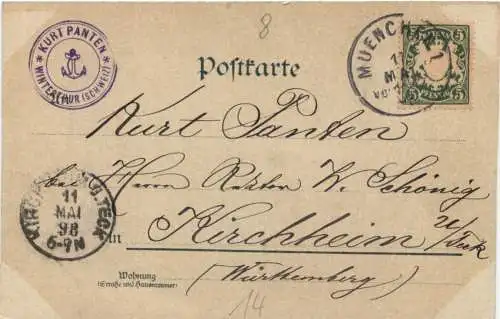 8
KURT PANTEN
WINTERTHUR (SCHWEIZ)
Postkarte
MUENCHEN
1
MAI
5 5
5 5
Kurt Panten
bei Herrn Rektor W. Schönig
KIRCHHEIM U. TECK
11
MAI
98
6-7N
in Kirchheim u/Teck
(Württemberg)
Wohnung
(Straße und Hausnummer)
14